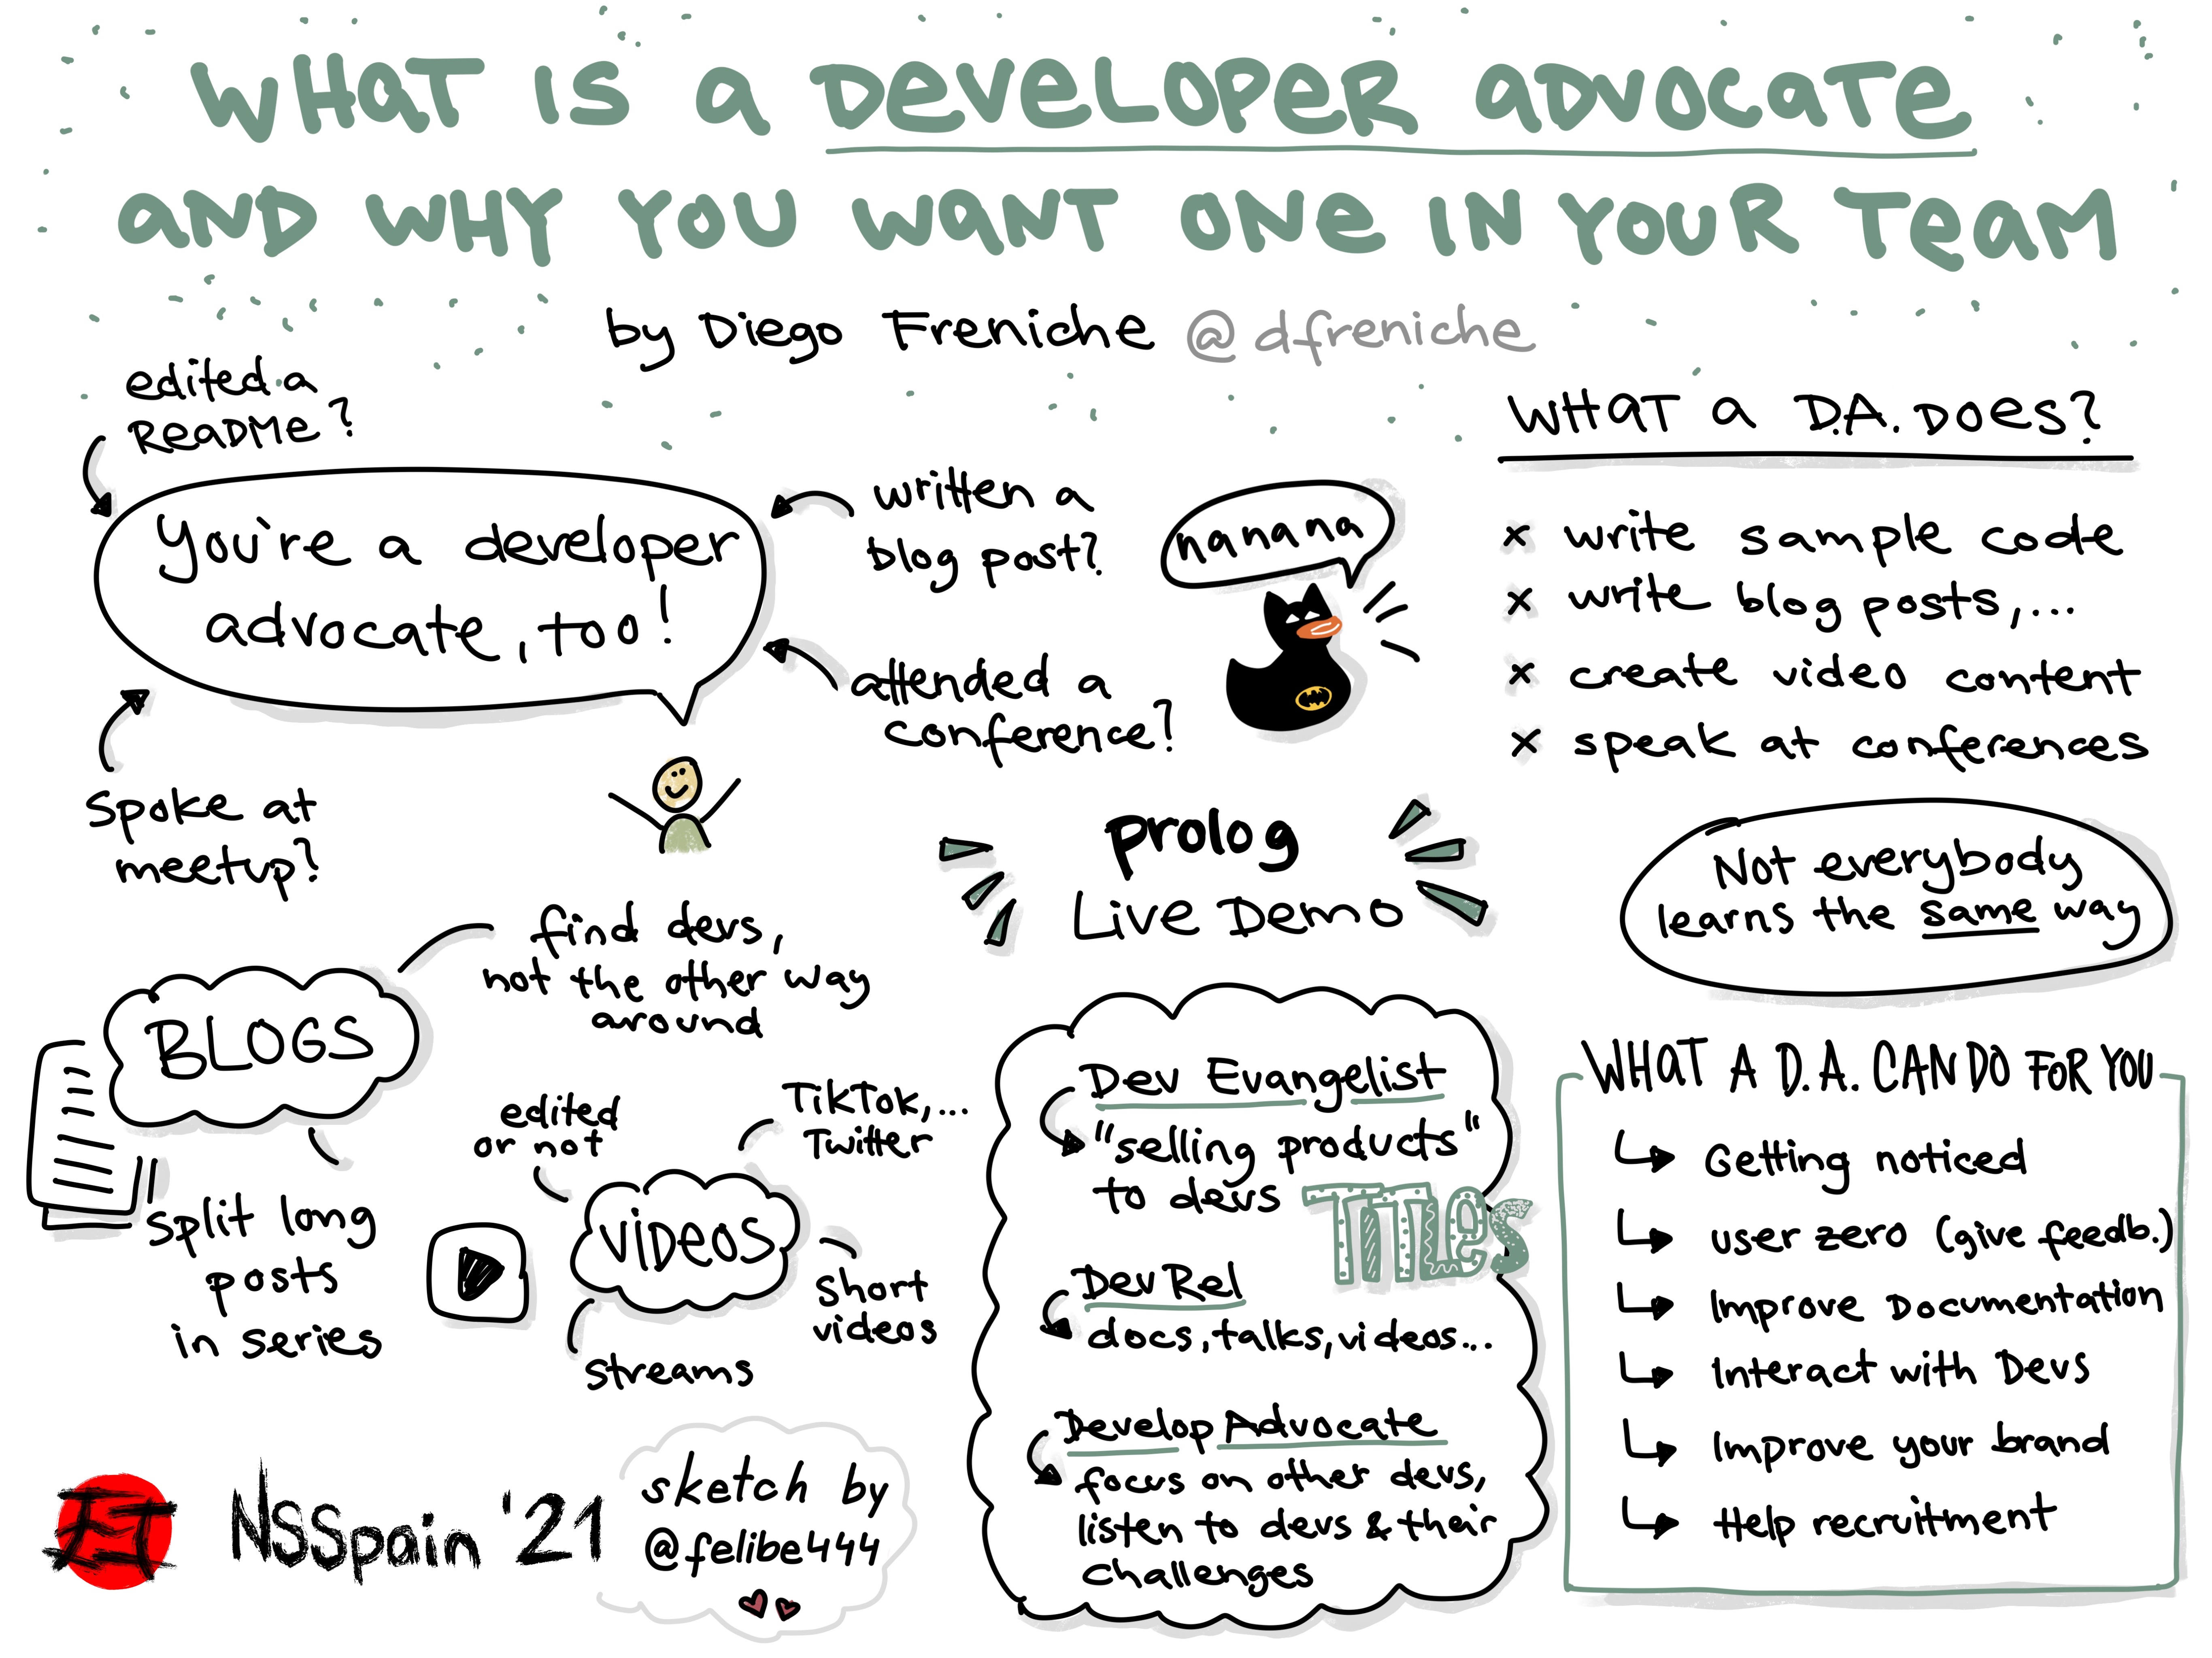 WHAT IS A DEVELOPER ADVOCATE
AND WHY YOU WANT ONE IN YOUR TEAM
by Diego Freniche @dfreniche
edited a
README?
You're a developer
advocate, too!
written a
blog post?
attended a
conference?
spoke at
meetup?
nanana
WHAT A D.A. DOES?
x write sample code
x write blog posts,...
x create video content
x speak at conferences
prolog
Live Demo
Not everybody
learns the same way
BLOGS
find devs,
not the other way
around
split long
posts
in series
VIDEOS
edited
or not
TikTok,...
Twitter
short
videos
streams
TITLES
Dev Evangelist
"selling products"
to devs
DevRel
docs, talks, videos...
Develop Advocate
focus on other devs,
listen to devs & their
challenges
WHAT A D.A. CAN DO FOR YOU
Getting noticed
user zero (give feedb.)
Improve Documentation
Interact with Devs
Improve your brand
Help recruitment
NSSpain '21
sketch by
@felibe444